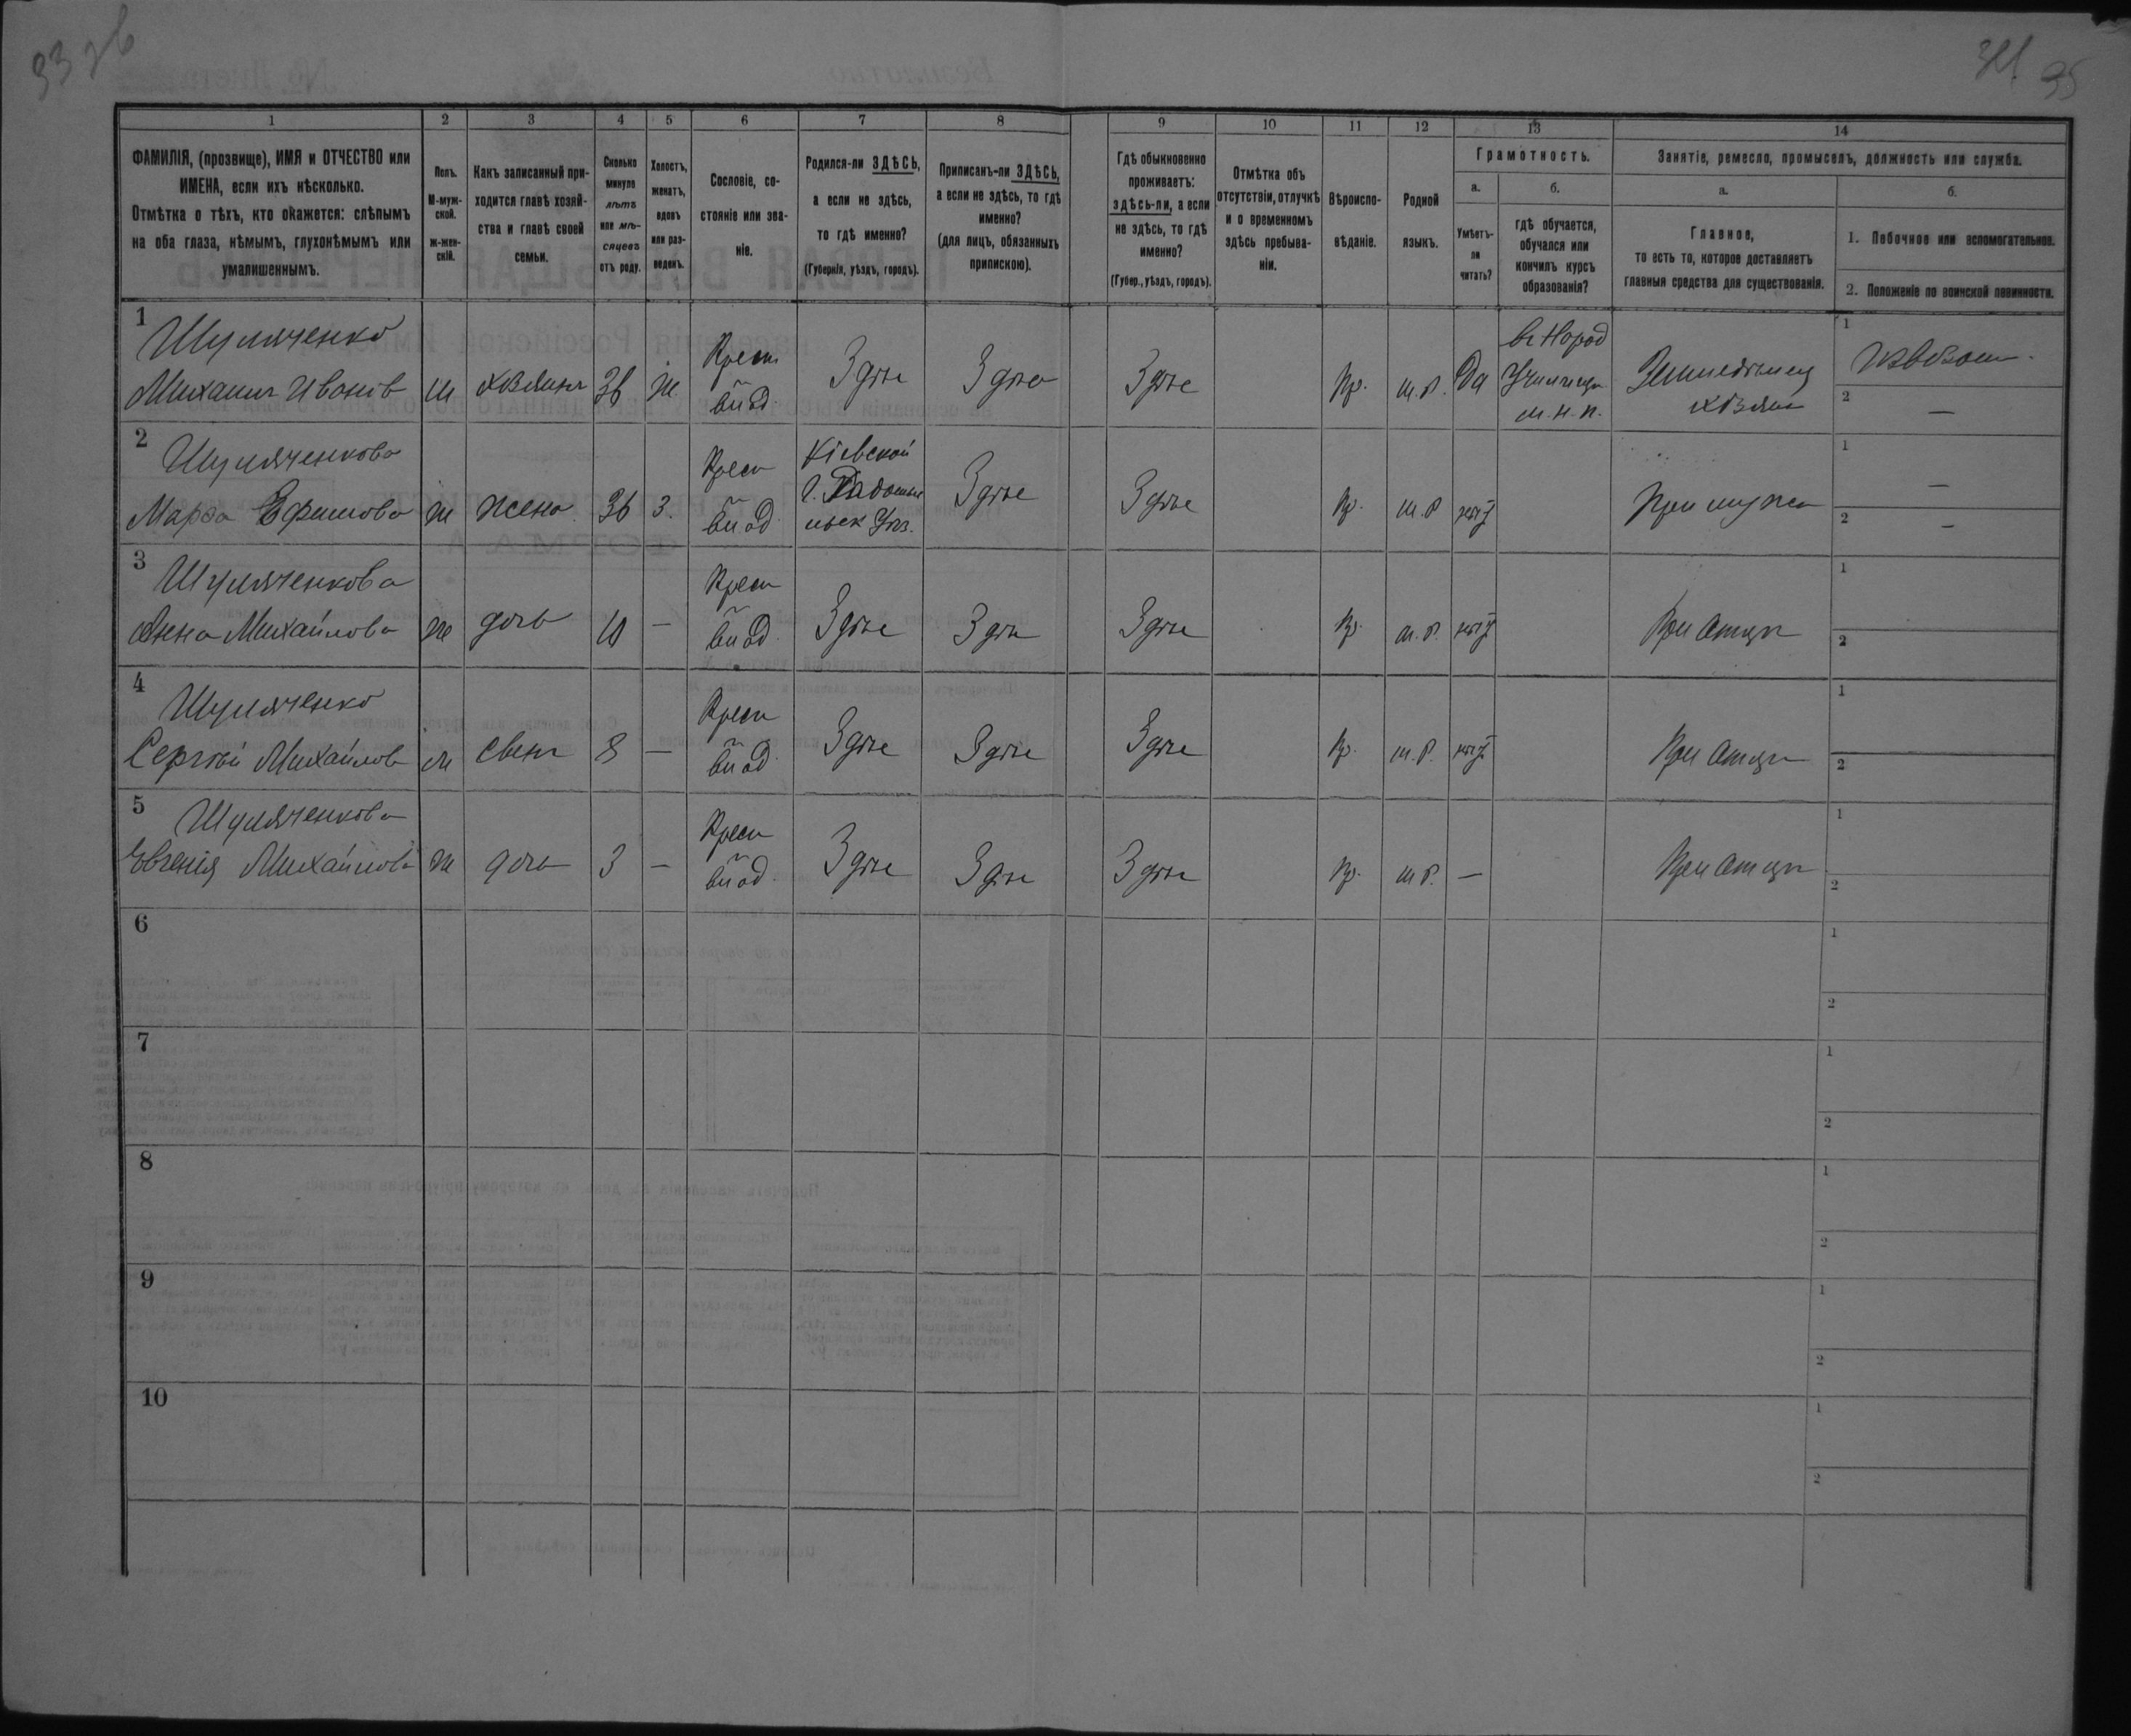 93 г в
311 95
1 2 3 4 5 6 7 8 9 10 11 12 13 14
ФАМИЛІЯ, (прозвище), ИМЯ и ОТЧЕСТВО или
ИМЕНА, если ихъ нѣсколько.
Отмѣтка о тѣхъ, кто окажется: слѣпымъ
на оба глаза, нѣмымъ, глухонѣмымъ или
умалишеннымъ.
Полъ.
М-муж-
ской.
ж-жен-
скій.
Какъ записанный при-
ходится главѣ хозяй-
ства и главѣ своей
семьи.
Сколько
минуло
лѣтъ
или мѣ-
сяцевъ
отъ роду.
Холостъ,
женатъ,
вдовъ
или раз-
веденъ.
Сословіе, со-
стояніе или зва-
ніе.
Родился-ли ЗДѢСЬ,
а если не здѣсь,
то гдѣ именно?
(Губернія, уѣздъ, городъ).
Приписанъ-ли ЗДѢСЬ,
а если не здѣсь, то гдѣ
именно?
(для лицъ, обязанныхъ
припискою).
Гдѣ обыкновенно
проживаетъ:
здѣсь-ли, а если
не здѣсь, то гдѣ
именно?
(Губер., уѣздъ, городъ).
Отмѣтка объ
отсутствіи, отлучкѣ
и о временномъ
здѣсь пребыва-
ніи.
Вѣроиспо-
вѣданіе.
Родной
языкъ.
Грамотность.
а.
Умѣетъ-
ли
читать?
б.
гдѣ обучается,
обучался или
кончилъ курсъ
образованія?
Занятіе, ремесло, промыселъ, должность или служба.
а.
Главное,
то есть то, которое доставляетъ
главныя средства для существованія.
б.
1. Побочное или вспомогательное.
2. Положеніе по воинской повинности.
1
Шуляченко
Михаилъ Ивановъ
м
хозяинъ
36
ж
Крест
бывд
Здѣсь
Здѣсь
Здѣсь
Пр.
м.р.
Да
въ Народ
Училищѣ
м.н.п.
Земледѣлец
хозяин
1 Извозом
2 —
2
Шуляченкова
Марфа Ефимова
ж
жена
36
з.
Крест
бывд
Кіевской
г. Радомысль
ьск Уѣз.
Здѣсь
Здѣсь
Пр.
м.р
нѣт
При мужѣ
1 —
2 —
3
Шуляченкова
Анна Михайлова
ж
дочь
10
—
Крест
бывд
Здѣсь
Здѣсь
Здѣсь
Пр.
м.р.
нѣт
При отцѣ
1
2
4
Шуляченко
Сергѣй Михайлов
м
Сынъ
8
—
Крест
бывд
Здѣсь
Здѣсь
Здѣсь
Пр.
м.р.
нѣт
При отцѣ
1
2
5
Шуляченкова
Евгенія Михайлова
ж
дочь
3
—
Крест
бывд
Здѣсь
Здѣсь
Здѣсь
Пр.
м р.
—
При отцѣ
1
2
6
1
2
7
1
2
8
1
2
9
1
2
10
1
2